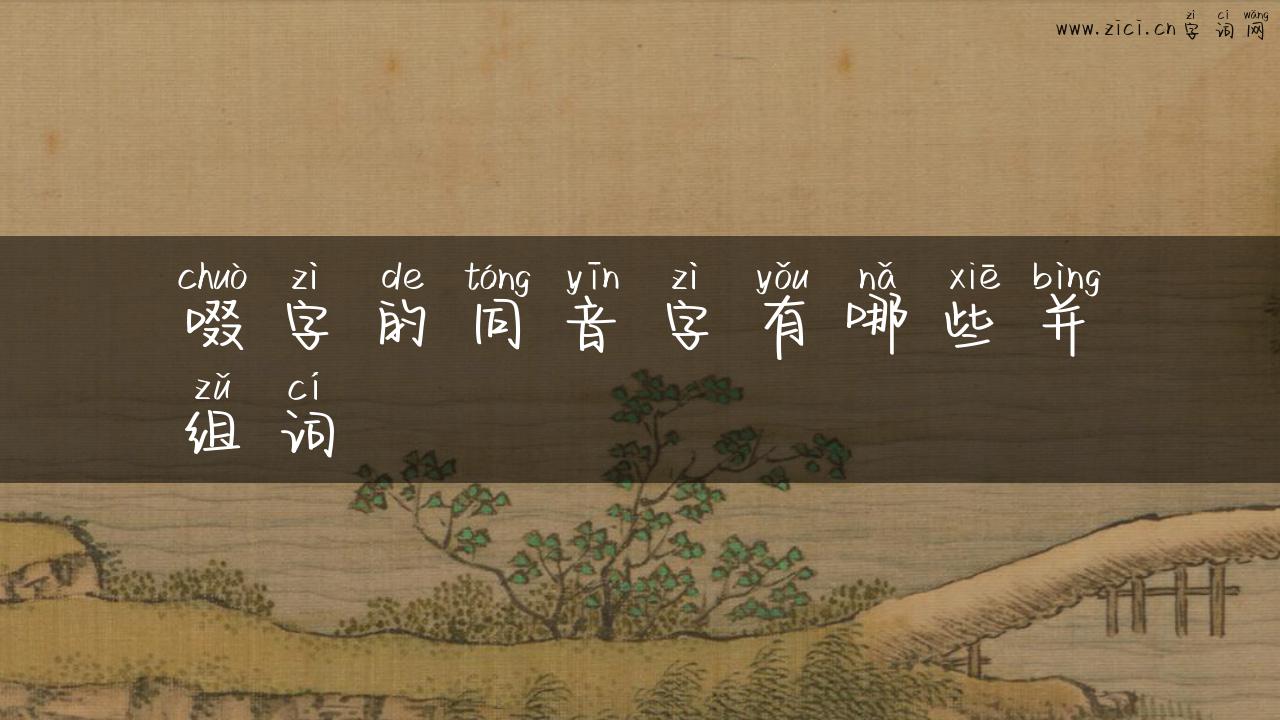 zì cí wǎng
www.zici.cn 字词网
chuò zì de tóng yīn zì yǒu nǎ xiē bìng
啜字的同音字有哪些并
zǔ cí
组词